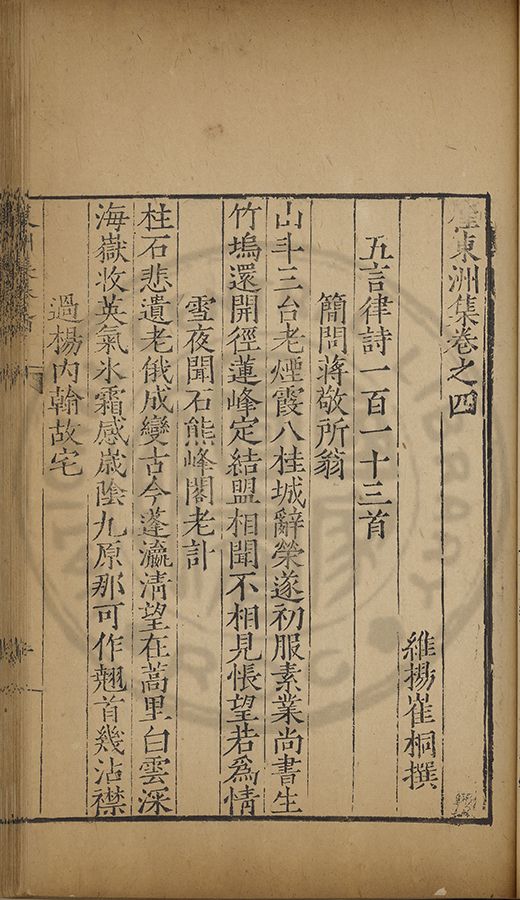 崔東洲集卷之四
維揚崔桐撰
五言律詩一百一十三首
簡問蔣敬所翁
山斗三台老煙霞八桂城辭榮遂初服素業尚書生
竹塢還開徑蓮峰定結盟相聞不相見悵望若爲情
雪夜聞石熊峰閣老訃
柱石悲遺老俄成變古今蓬瀛清望在蒿里白雲深
海嶽收英氣氷霜感嵗陰九原那可作翹首幾沾襟
過楊内翰故宅